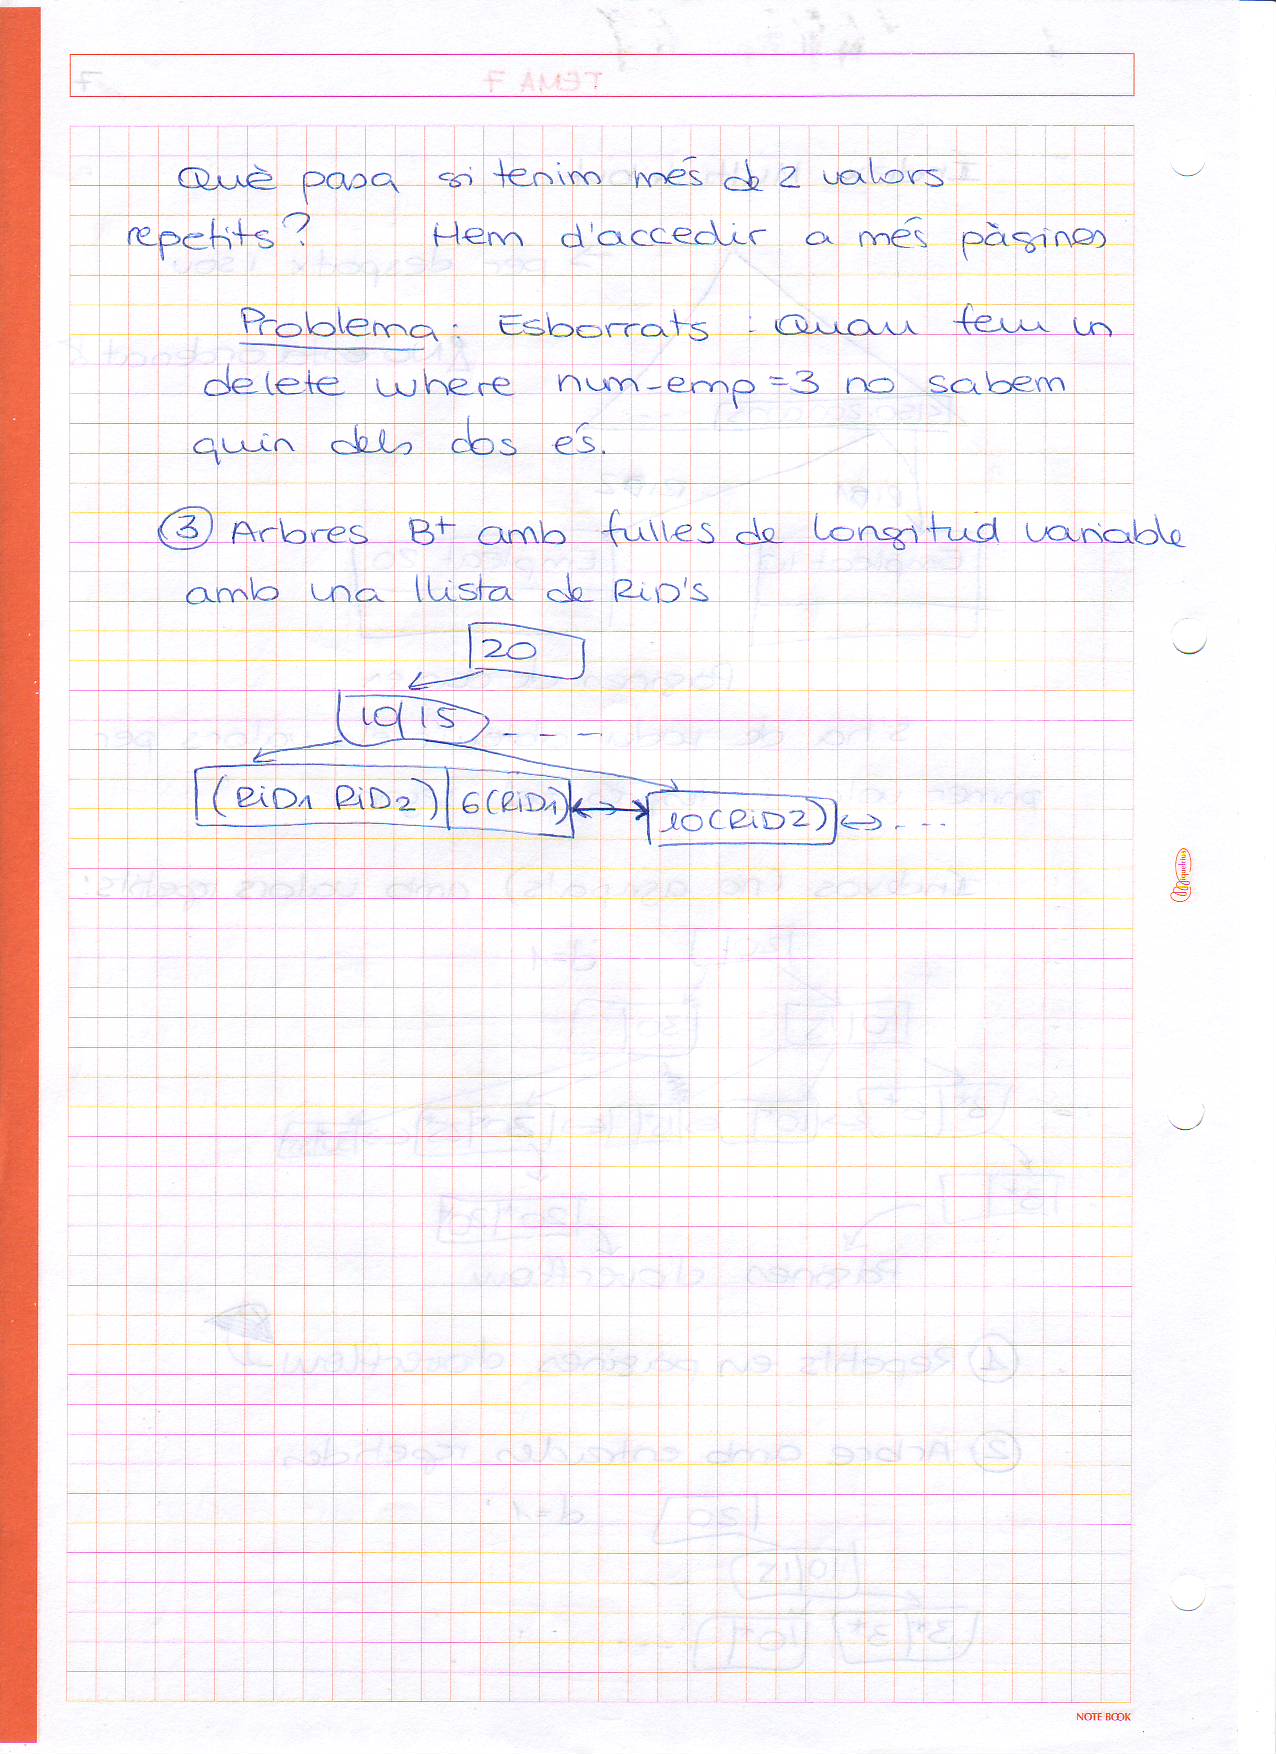 Què pasa si tenim més de 2 valors
repetits? Hem d'accedir a més pàgines
Problema: Esborrats: Quan fem un
delete where num-emp=3 no sabem
quin dels dos és.
③ Arbres B+ amb fulles de longitud variable
amb una llista de RiD's
20
10 | 15 - - - -
(RiD1 RiD2) | 6(RiD1) ↔ 10(RiD2) ↔ . - -
miquelrius
NOTE BOOK